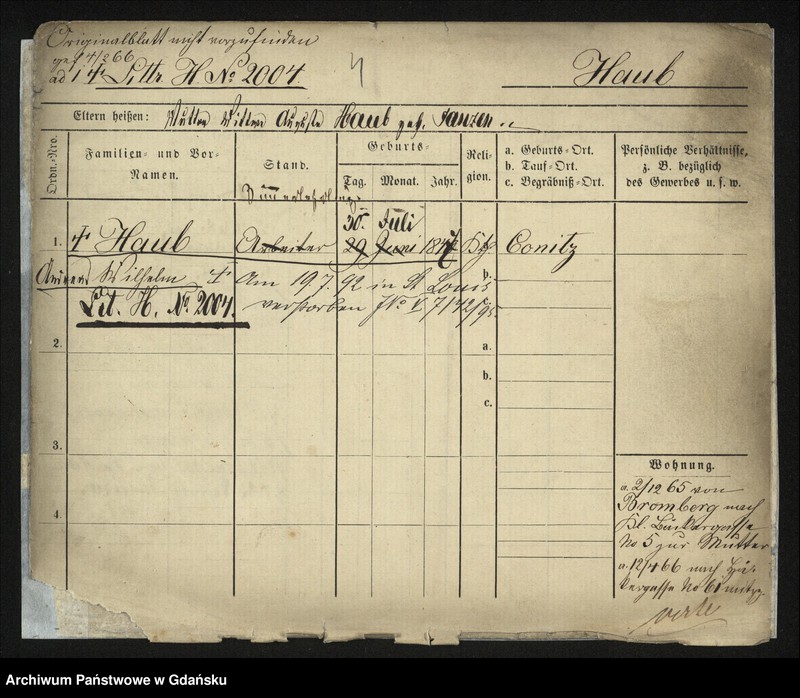 Originalblatt nicht vorzufinden
gef 4/2 66
ad 14 Littr. H. No 2004.
Haub
Eltern heißen: Mutter Wittwe Auguste Haub geb. Janzen
Ordn.-Nro.
Familien- und Vor-Namen.
Stand.
Geburts-
Tag. Monat. Jahr.
Religion.
a. Geburts-Ort.
b. Tauf-Ort.
c. Begräbniß-Ort.
Persönliche Verhältnisse,
z. B. bezüglich
des Gewerbes u. s. w.
30. Juli
1. Haub Arbeiter 29 Juni 1847 Conitz
Wilhelm Am 19 7. 92 in St Louis
Lit. H. No 2004. verstorben No V 7142/95
b.
2.
a.
b.
c.
3.
4.
Wohnung.
a. 2/12 65 von
Bromberg nach
Kl. Bäckergasse
No 5 zur Mutter
a. 12/4 66 nach
No 61
Archiwum Państwowe w Gdańsku